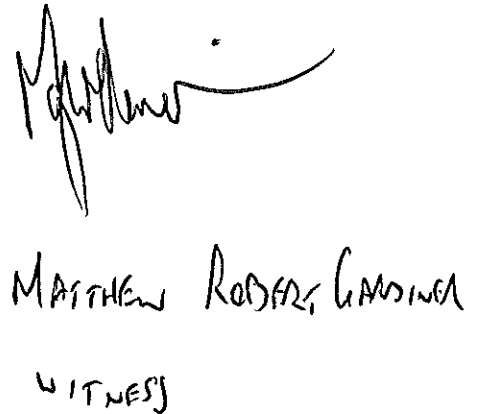 MATTHEW ROBERT GARDINER
WITNESS